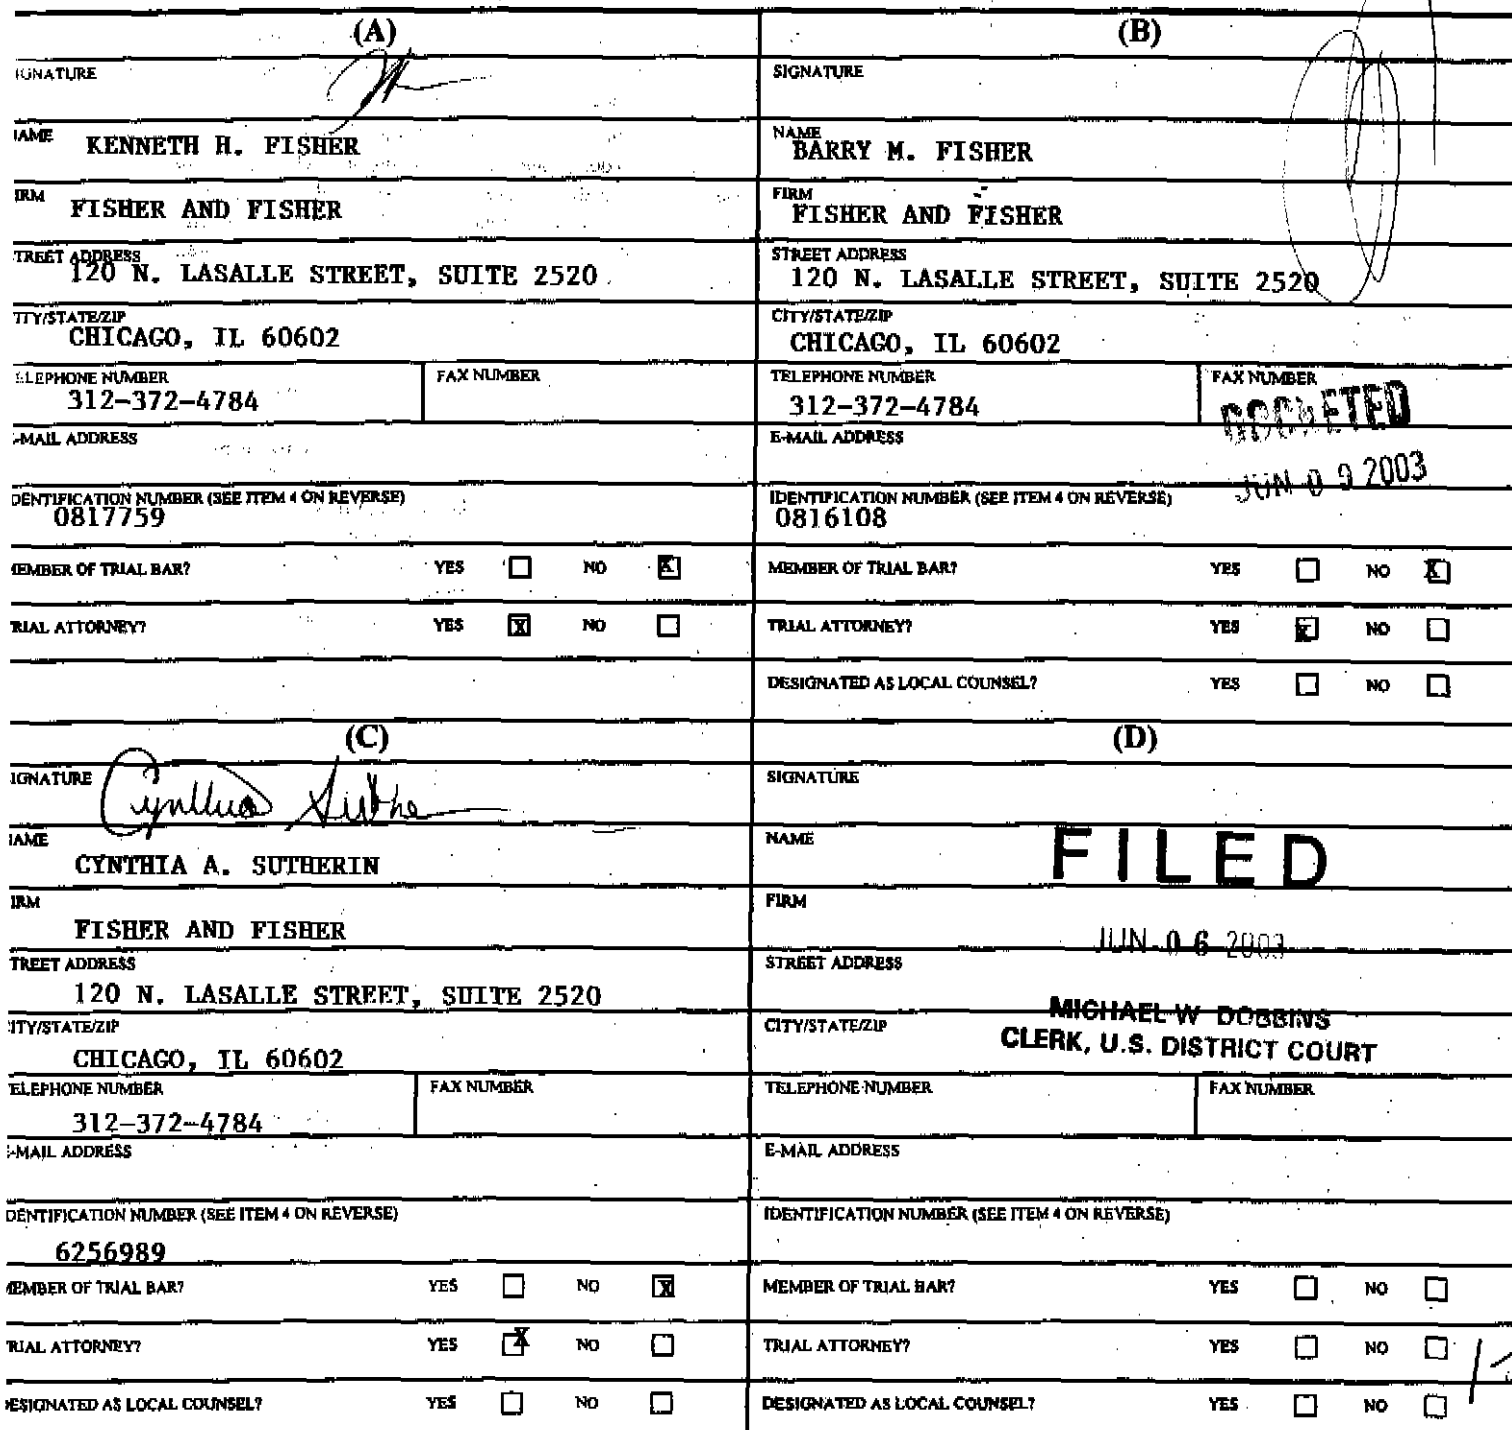 (A)
IGNATURE
AME KENNETH H. FISHER
IRM FISHER AND FISHER
TREET ADDRESS
120 N. LASALLE STREET, SUITE 2520
ITY/STATE/ZIP
CHICAGO, IL 60602
ELEPHONE NUMBER FAX NUMBER
312-372-4784
-MAIL ADDRESS
DENTIFICATION NUMBER (SEE ITEM 4 ON REVERSE)
0817759
EMBER OF TRIAL BAR? YES NO X
RIAL ATTORNEY? YES X NO
(B)
SIGNATURE
NAME
BARRY M. FISHER
FIRM
FISHER AND FISHER
STREET ADDRESS
120 N. LASALLE STREET, SUITE 2520
CITY/STATE/ZIP
CHICAGO, IL 60602
TELEPHONE NUMBER FAX NUMBER
312-372-4784 DOCKETED
E-MAIL ADDRESS
JUN 0 9 2003
IDENTIFICATION NUMBER (SEE ITEM 4 ON REVERSE)
0816108
MEMBER OF TRIAL BAR? YES NO X
TRIAL ATTORNEY? YES X NO
DESIGNATED AS LOCAL COUNSEL? YES NO
(C)
IGNATURE Cynthia Suthe
AME
CYNTHIA A. SUTHERIN
IRM
FISHER AND FISHER
TREET ADDRESS
120 N. LASALLE STREET, SUITE 2520
ITY/STATE/ZIP
CHICAGO, IL 60602
ELEPHONE NUMBER FAX NUMBER
312-372-4784
-MAIL ADDRESS
DENTIFICATION NUMBER (SEE ITEM 4 ON REVERSE)
6256989
EMBER OF TRIAL BAR? YES NO X
RIAL ATTORNEY? YES X NO
ESIGNATED AS LOCAL COUNSEL? YES NO
(D)
SIGNATURE
NAME FILED
FIRM
JUN 0 6 2003
STREET ADDRESS
MICHAEL W DOBBINS
CITY/STATE/ZIP CLERK, U.S. DISTRICT COURT
TELEPHONE NUMBER FAX NUMBER
E-MAIL ADDRESS
IDENTIFICATION NUMBER (SEE ITEM 4 ON REVERSE)
MEMBER OF TRIAL BAR? YES NO
TRIAL ATTORNEY? YES NO
DESIGNATED AS LOCAL COUNSEL? YES NO